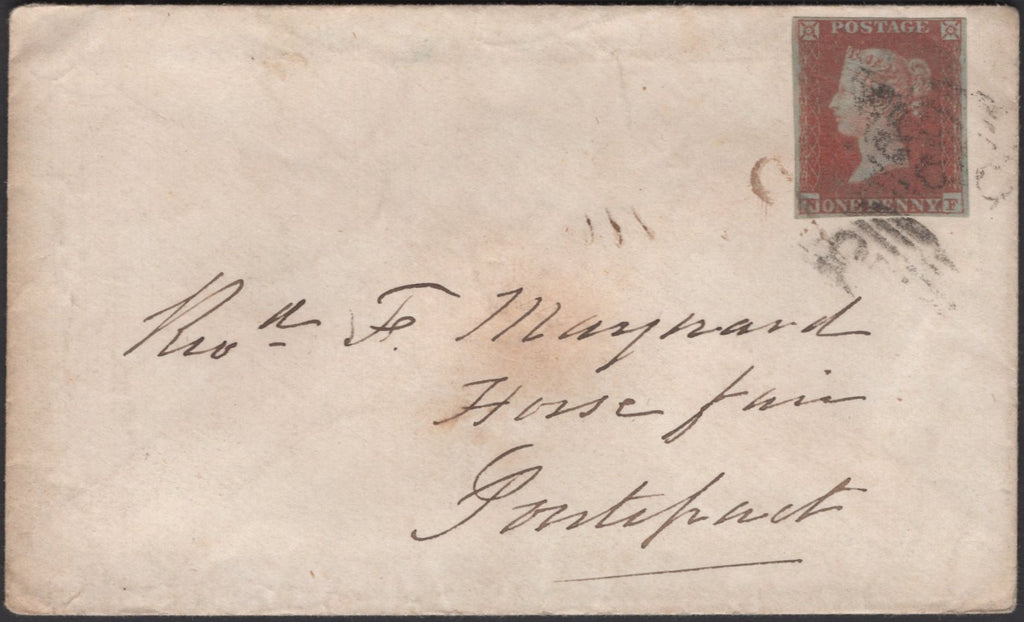 POSTAGE
N ONE PENNY F
Revd F. Maynard
Horse fair
Pontefract